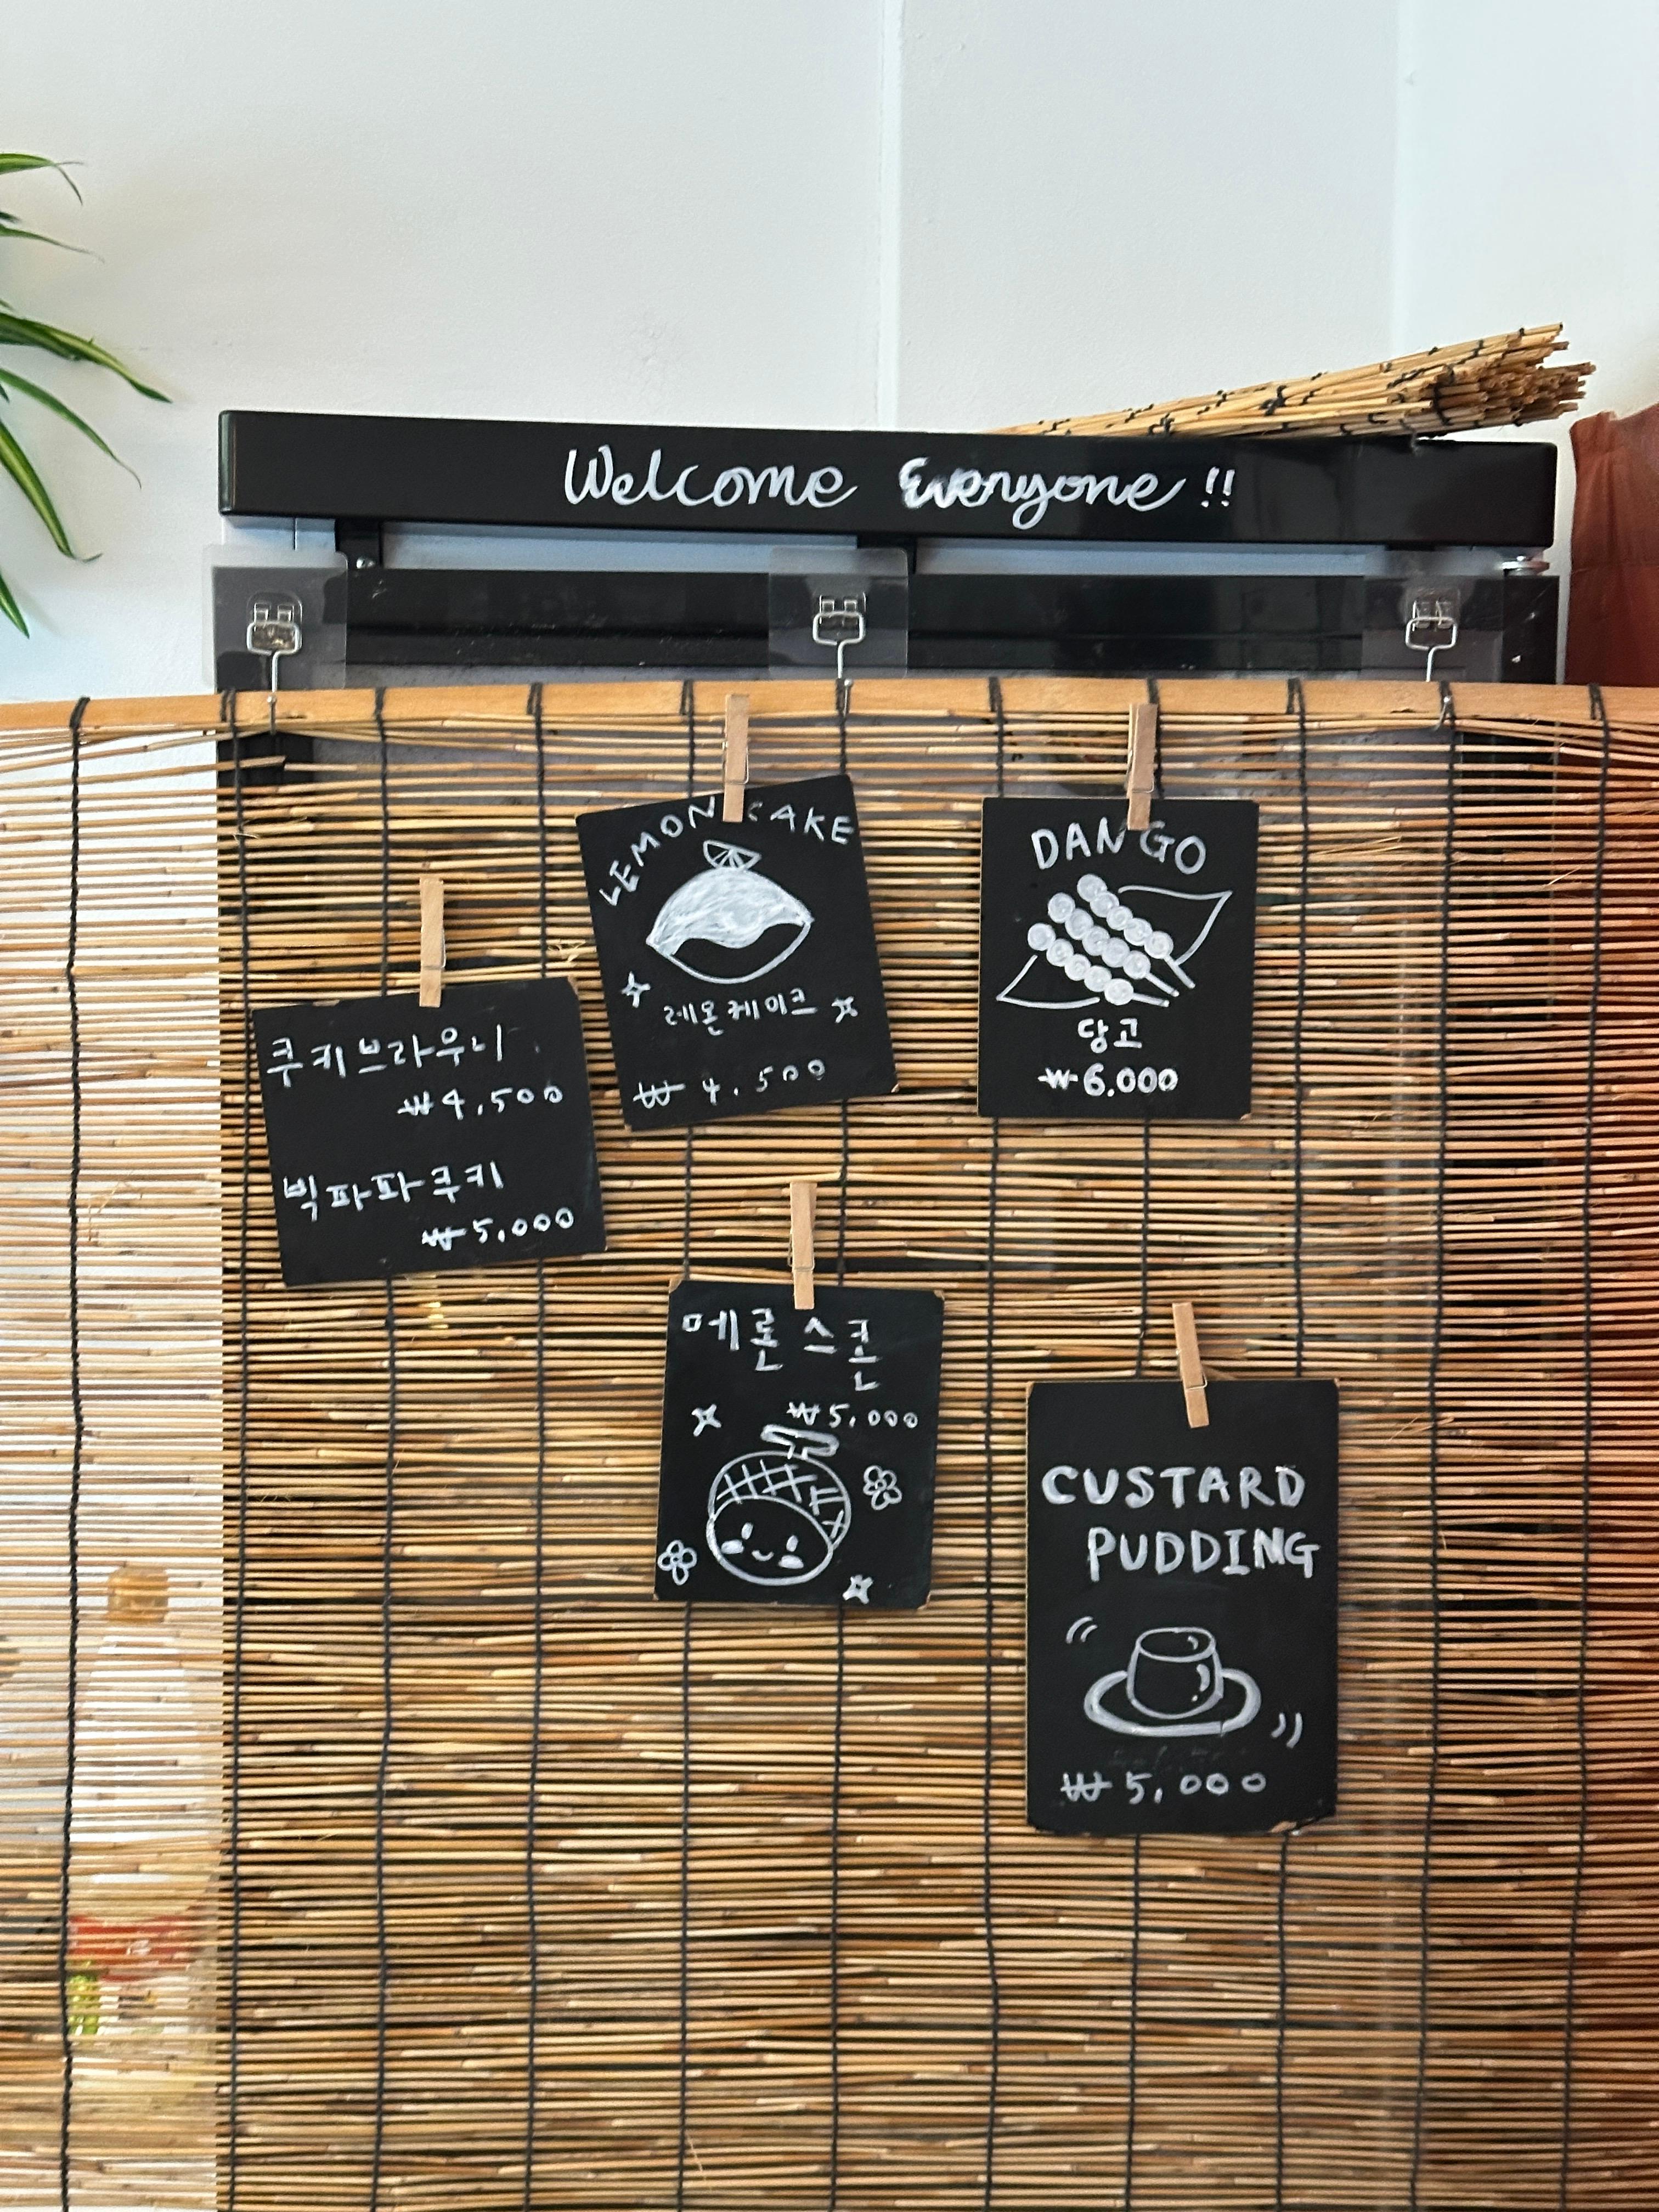 Welcome Everyone !!
LEMON CAKE
레몬케이크
₩ 4,500
DANGO
당고
₩6,000
쿠키브라우니
₩4,500
빅파파쿠키
₩5,000
메론스콘
₩5,000
CUSTARD
PUDDING
₩5,000